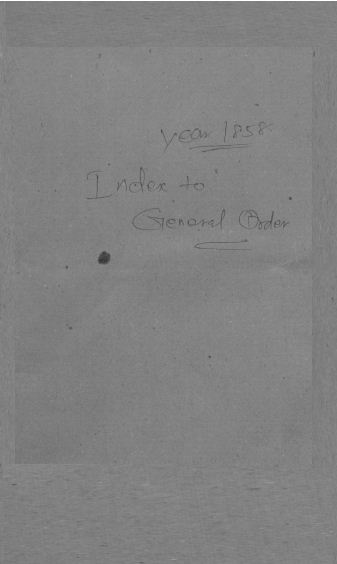 year 1858
Index to
General Order